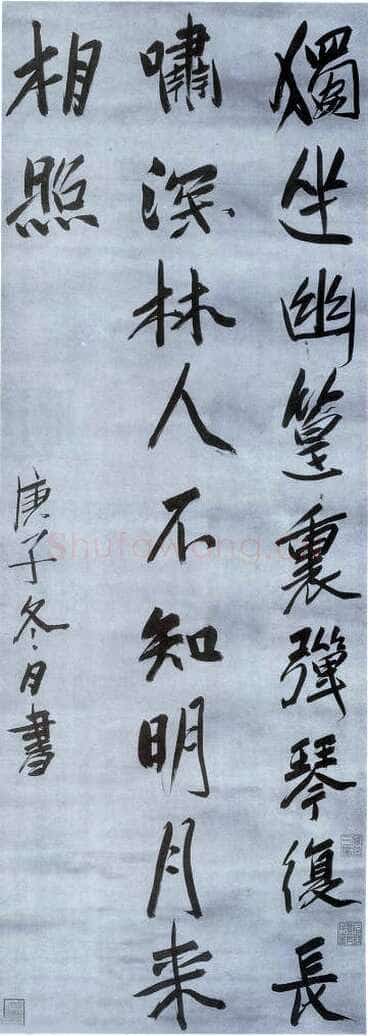 獨坐幽篁裏彈琴復長
嘯深林人不知明月来
相照
庚子冬月書
Shufawang.cn